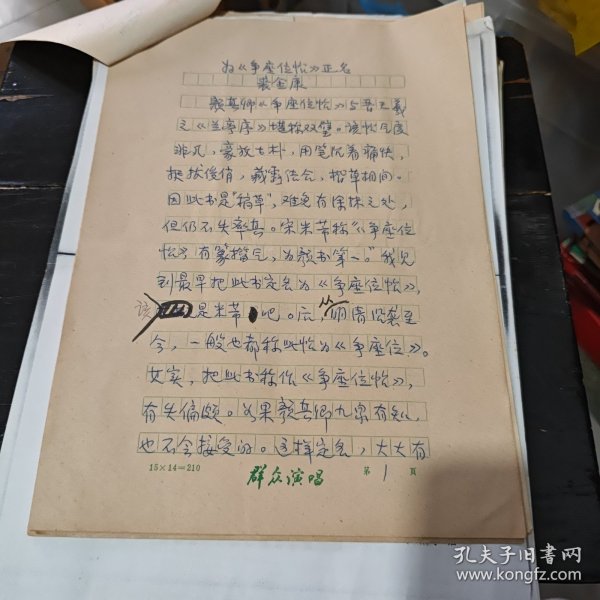 为《争座位帖》正名
裴金康
颜真卿《争座位帖》与晋王羲
之《兰亭序》堪称双壁。该帖气度
非凡，豪放古朴，用笔沉着痛快，
挺拔俊俏，藏露结合，楷草相间。
因此书是“稿草”，难免有涂抹之处，
但仍不失率真。宋米芾称“《争座位
帖》有篆籀气，为颜书第一。”我见
到最早把此书定名为《争座位帖》，
该是米芾吧。后从明清沿袭至
今，一般也都称此帖为《争座位》。
其实，把此书称作《争座位帖》，
有失偏颇。如果颜真卿九泉有知，
也不会接受的。这样定名，大大有
15×14=210
群众演唱
第1页
孔夫子旧书网
www.kongfz.com